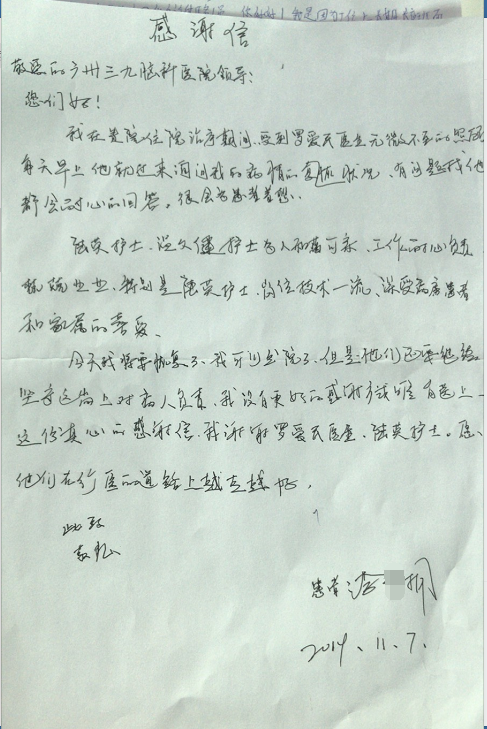 感谢信
敬爱的广州三九脑科医院领导:
您们好!
我在贵院住院治疗期间,受到罗爱民医生无微不至的照顾
每天早上他都过来询问我的病情的 状况,有问题找他
都会耐心的回答。很会为患者着想、
陆英护士、温久健护士为人和蔼可亲、工作耐心负责
兢兢业业、特别是陆英护士、岗位技术一流、深受病房患者
和家属的喜爱、
今天我将要恢复了、我可以出院了、但是他们还要继续
坚守这岗上对病人负责,我没有更好的感谢方式 唯有送上
这份真心的感谢信、我谢谢罗爱民医生、陆英护士。愿
他们在行医的道路上越走越好。
此致
敬礼
患者
2014、11、7、